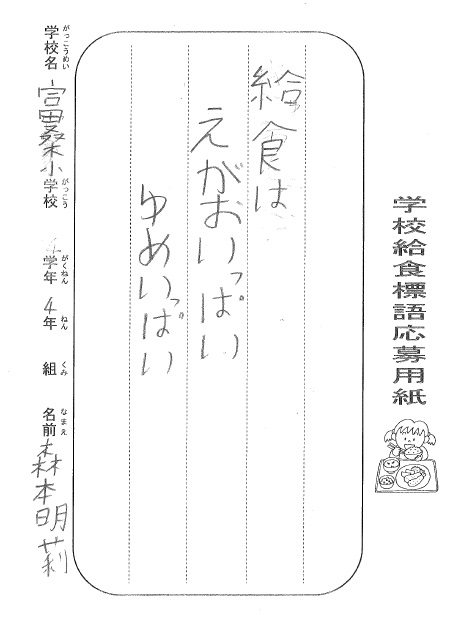 学校給食標語応募用紙
給食は
えがおいっぱい
ゆめいっぱい
学校名 宮田桑小学校 学年 4年 組 名前 森本明莉
がっこうめい がっこう がくねん ねん くみ なまえ